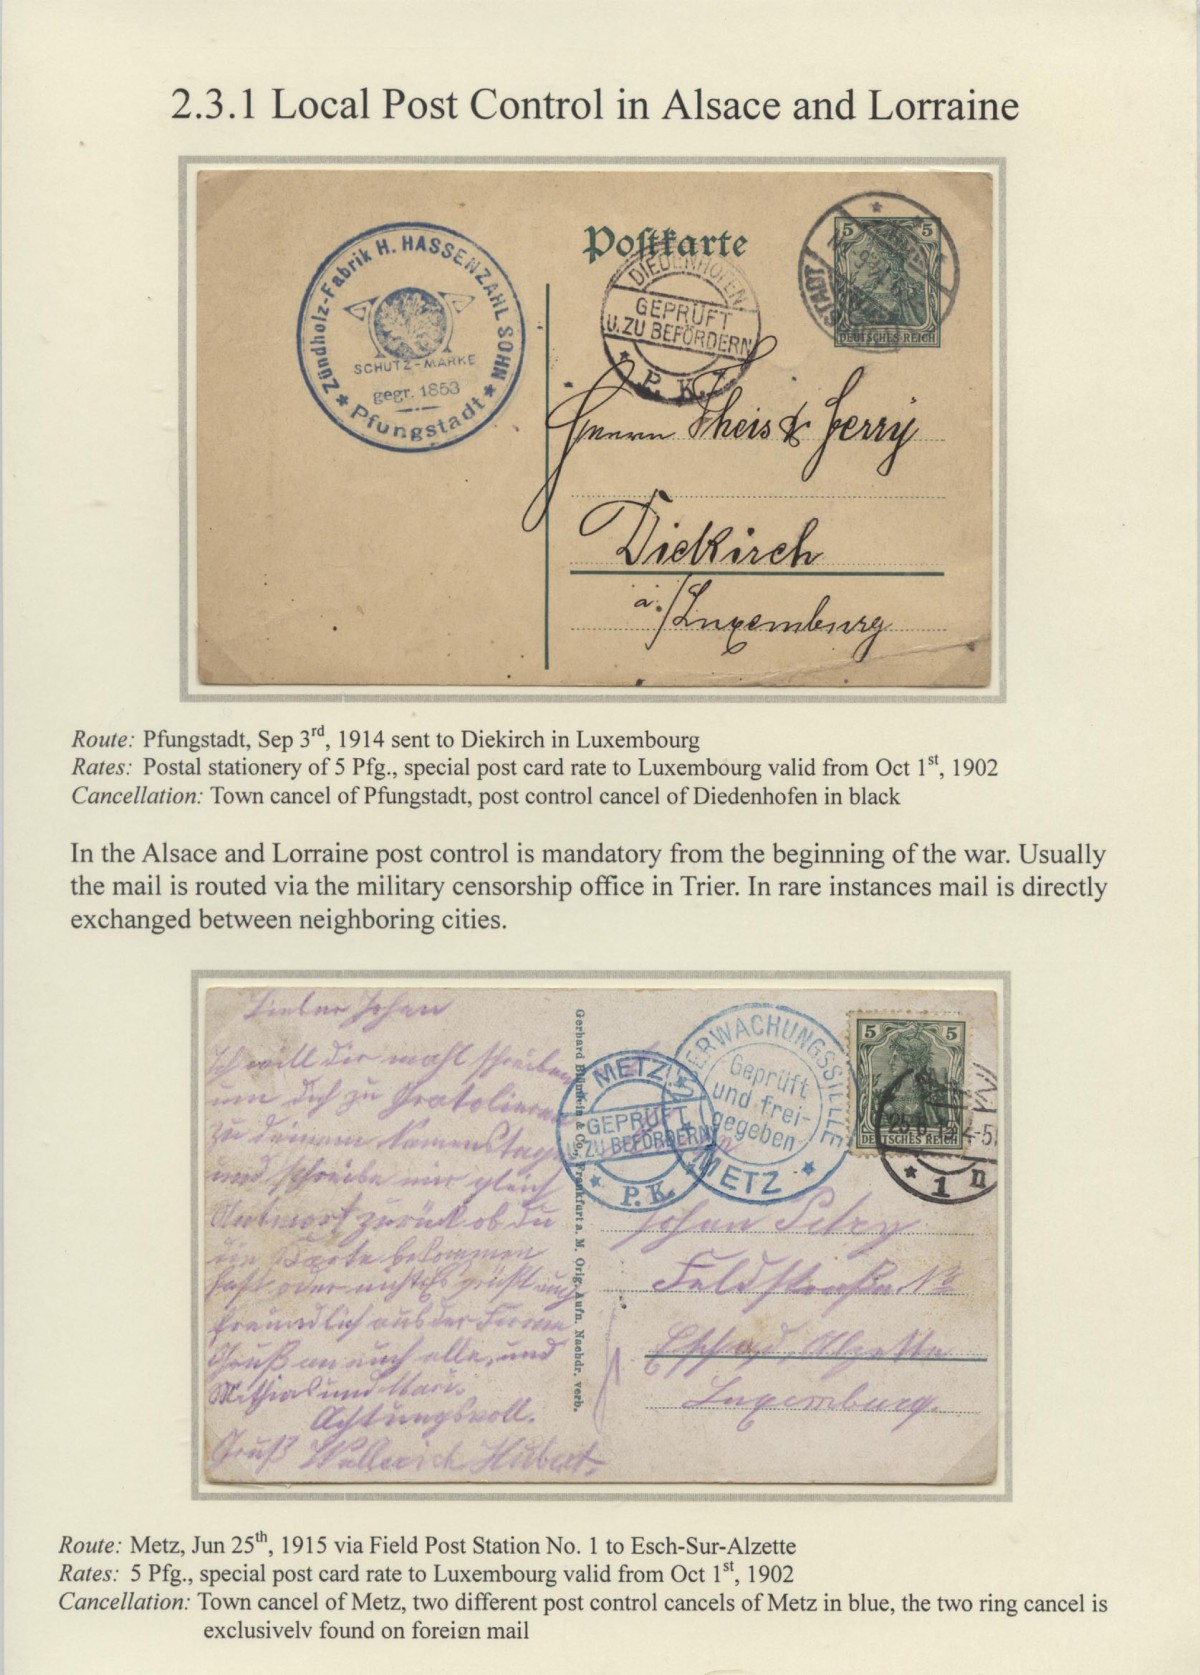 2.3.1 Local Post Control in Alsace and Lorraine
Zündholz-Fabrik H. HASSENZAHL SOHN
SCHUTZ-MARKE
gegr. 1853
★ Pfungstadt ★
Postkarte
DIEDENHOFEN
GEPRÜFT
U. ZU BEFÖRDERN
P. K.
5 5
DEUTSCHES REICH
Herrn Theis &
Diekirch
a./Luxemburg
Route: Pfungstadt, Sep 3rd, 1914 sent to Diekirch in Luxembourg
Rates: Postal stationery of 5 Pfg., special post card rate to Luxembourg valid from Oct 1st, 1902
Cancellation: Town cancel of Pfungstadt, post control cancel of Diedenhofen in black
In the Alsace and Lorraine post control is mandatory from the beginning of the war. Usually
the mail is routed via the military censorship office in Trier. In rare instances mail is directly
exchanged between neighboring cities.
Lieber Johan
Ich will dir mahl schreiben
um dich zu Gratolieren
zu deinem Namenstage
und schreibe mir gleich
Antwort zurück ob du
die Karte bekommen
hast oder nicht
freundlich aus der
Gruß an euch alle, und
Mathias und Mari.
Achtungsvoll.
Gruß Hubert.
Frankfurt a. M. Orig. Aufn. Nachdr. verb.
METZ
GEPRÜFT
U. ZU BEFÖRDERN
P. K.
UEBERWACHUNGSSTELLE
Geprüft
und frei-
gegeben
METZ
5 5
DEUTSCHES REICH
1 n
Johan Petry
Feldstraße No
Esch a. d. Alzette
Luxemburg.
Route: Metz, Jun 25th, 1915 via Field Post Station No. 1 to Esch-Sur-Alzette
Rates: 5 Pfg., special post card rate to Luxembourg valid from Oct 1st, 1902
Cancellation: Town cancel of Metz, two different post control cancels of Metz in blue, the two ring cancel is
exclusively found on foreign mail